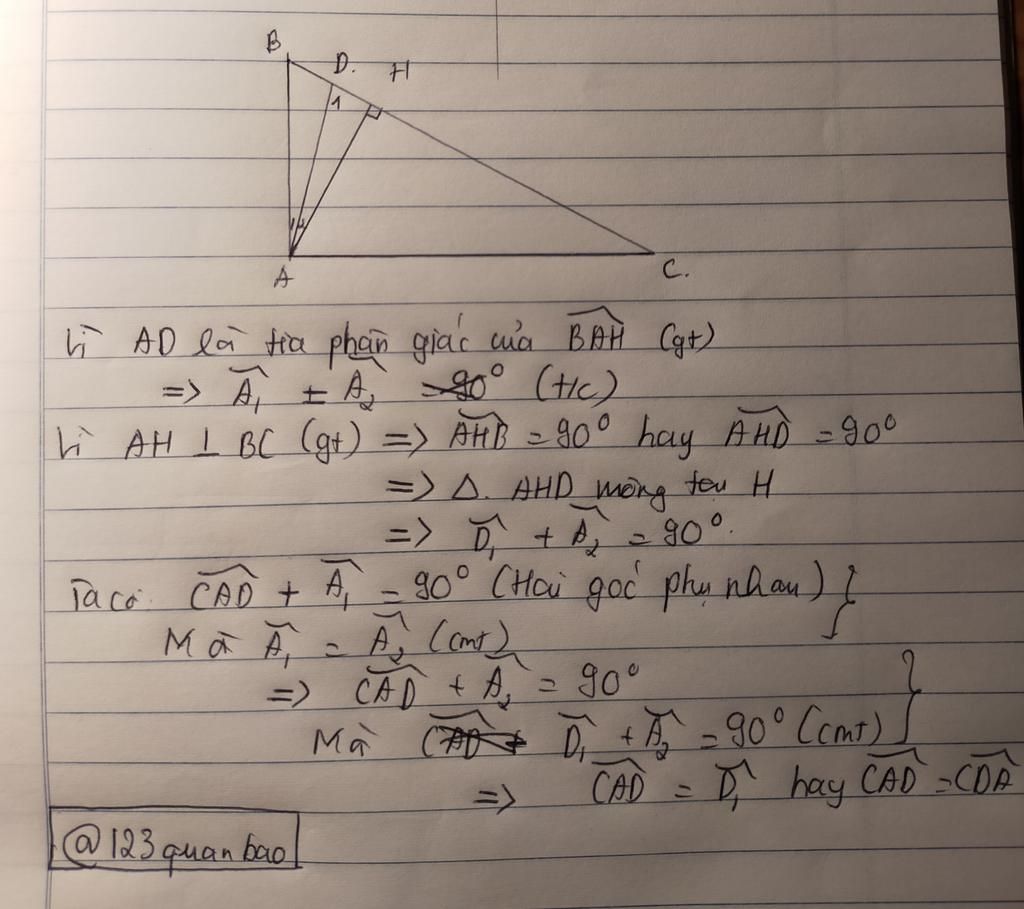 B
D.
H
1
1 2
A
C.
Vì AD là tia phân giác của BAH (gt)
=> A₁ = A₂ (t/c)
Vì AH ⊥ BC (gt) => AHB = 90° hay AHD = 90°
=> Δ. AHD vuông tại H
=> D₁ + A₂ = 90°.
Ta có. CAD + A₁ = 90° (Hai góc phụ nhau)
Mà A₁ = A₂ (cmt)
=> CAD + A₂ = 90°
Mà D₁ + A₂ = 90° (cmt)
=> CAD = D₁ hay CAD = CDA
@123quanbao